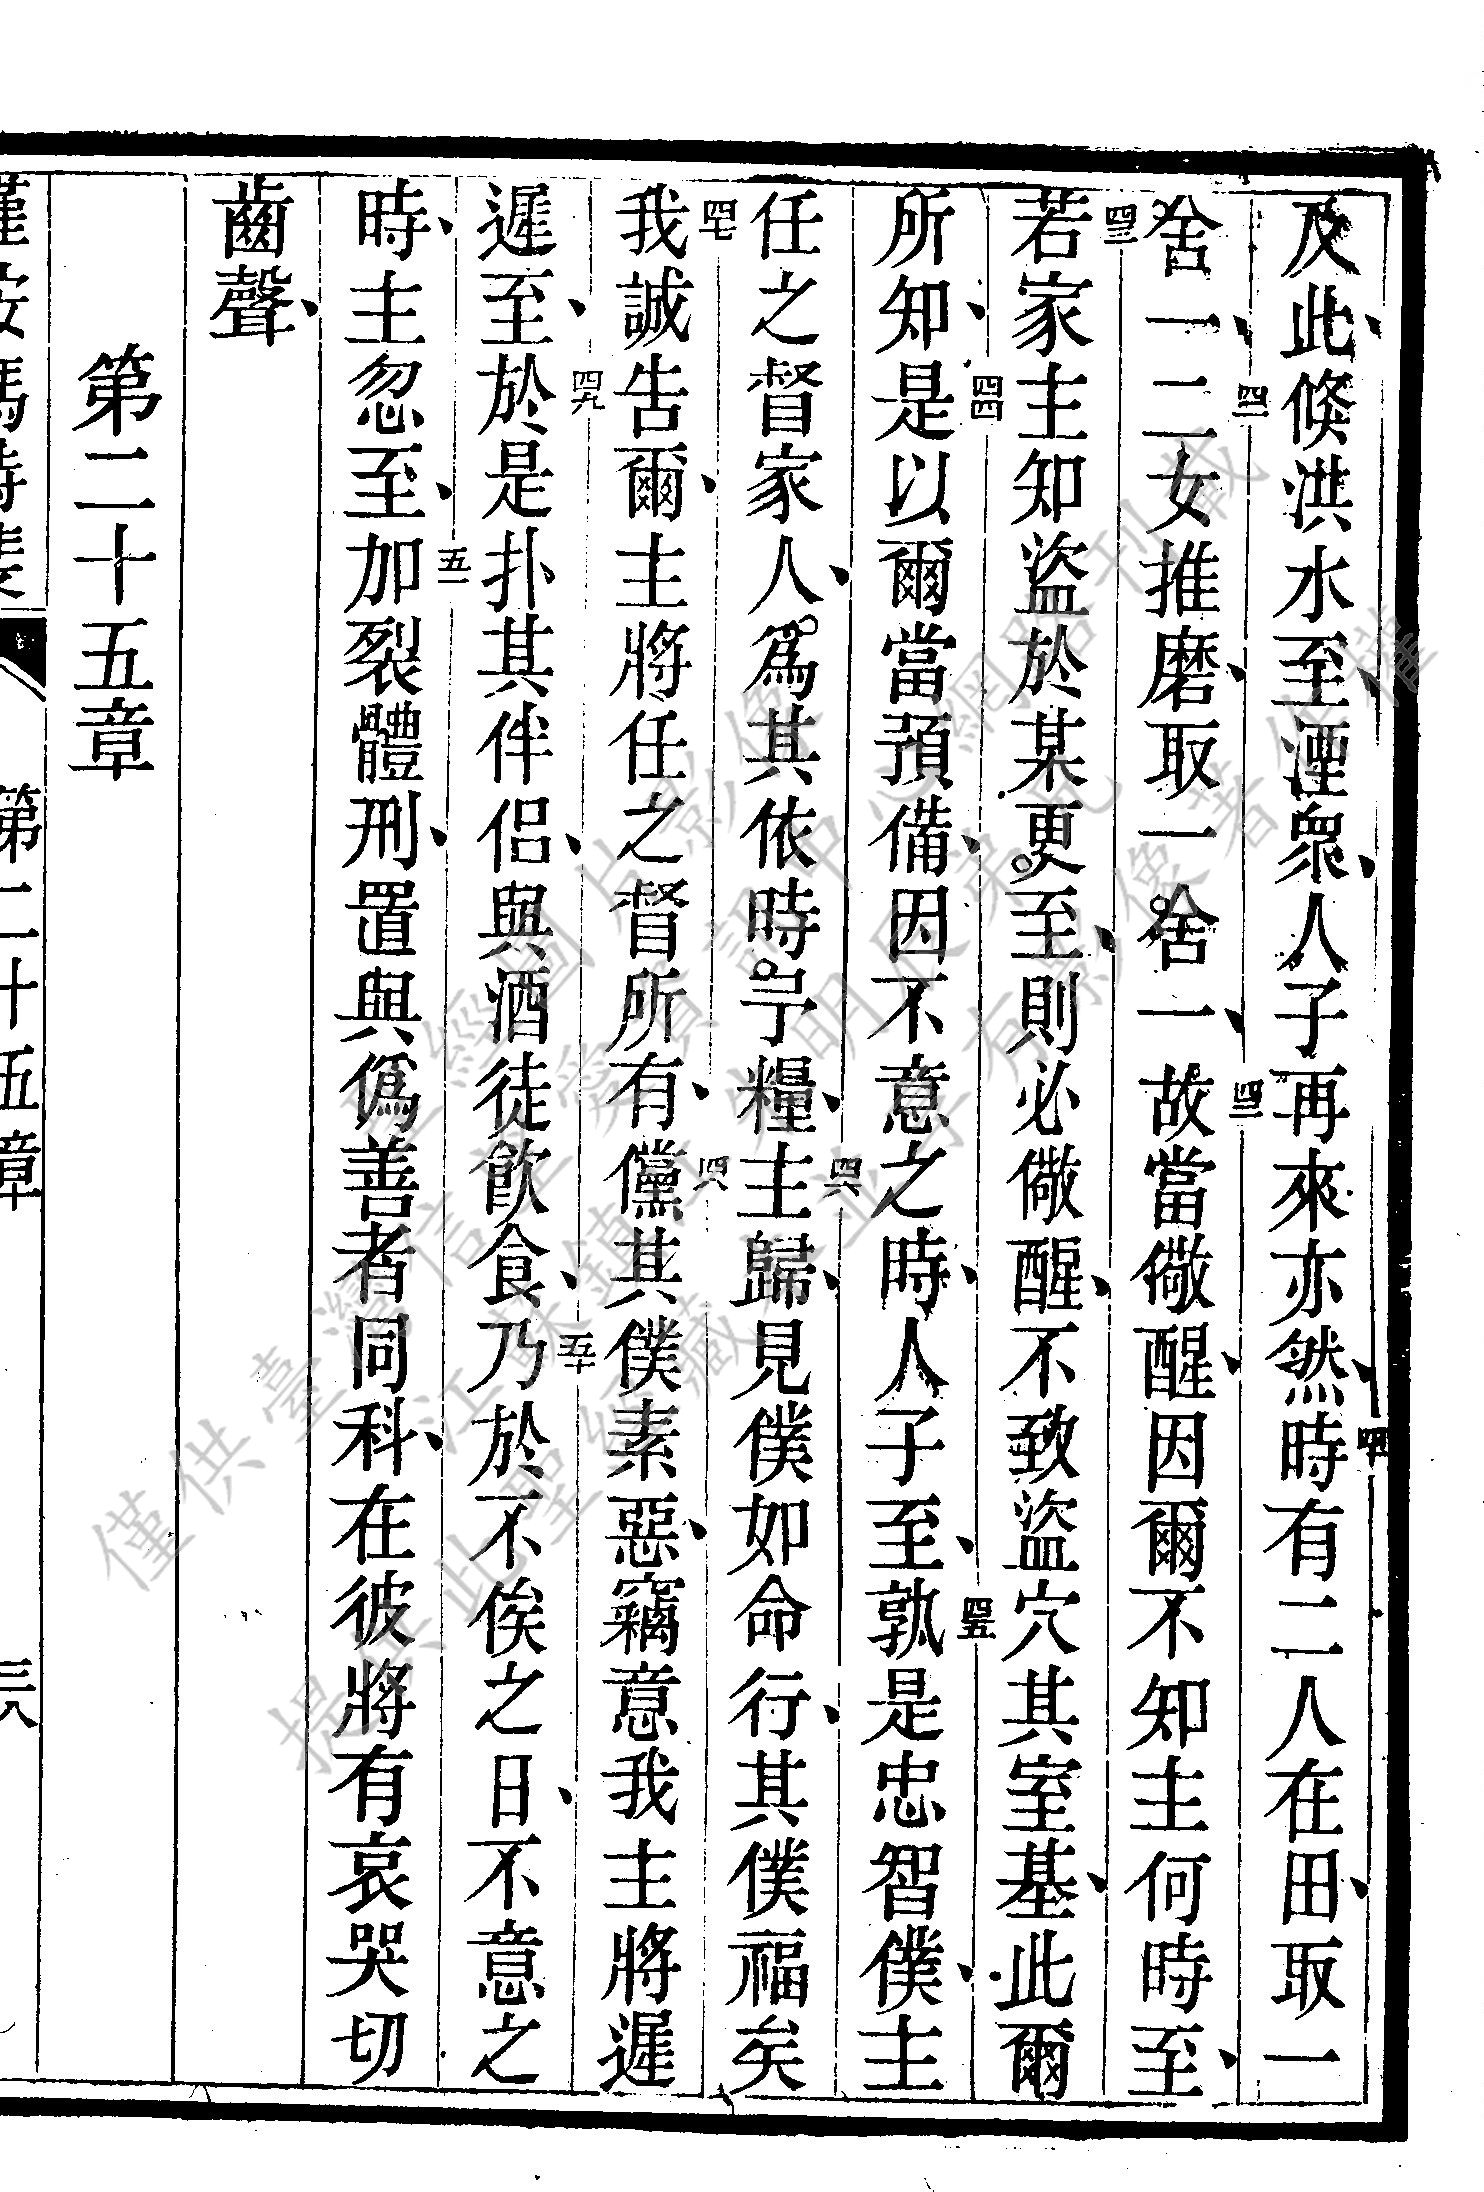 及此、倐洪水至、湮衆、人子再來亦然、四十時有二人在田、取一
舍一、四一二女推磨、取一舍一、四二故當儆醒、因爾不知主何時至、
四三若家主知盜於某更至、則必儆醒、不致盜穴其室基、此爾
所知、四四是以爾當預備、因不意之時、人子至、四五孰是忠智僕、主
任之督家人、爲其依時予糧、四六主歸、見僕如命行、其僕福矣
四七我誠告爾、主將任之督所有、四八儻其僕素惡、竊意我主將遲
遲至、四九於是扑其伴侶、與酒徒飲食、五十乃於不俟之日、不意之
時、主忽至、五一加裂體刑、置與僞善者同科、在彼將有哀哭切
齒聲、
第二十五章
第二十五章
三八
僅供臺灣信望愛資訊中心網路刊載